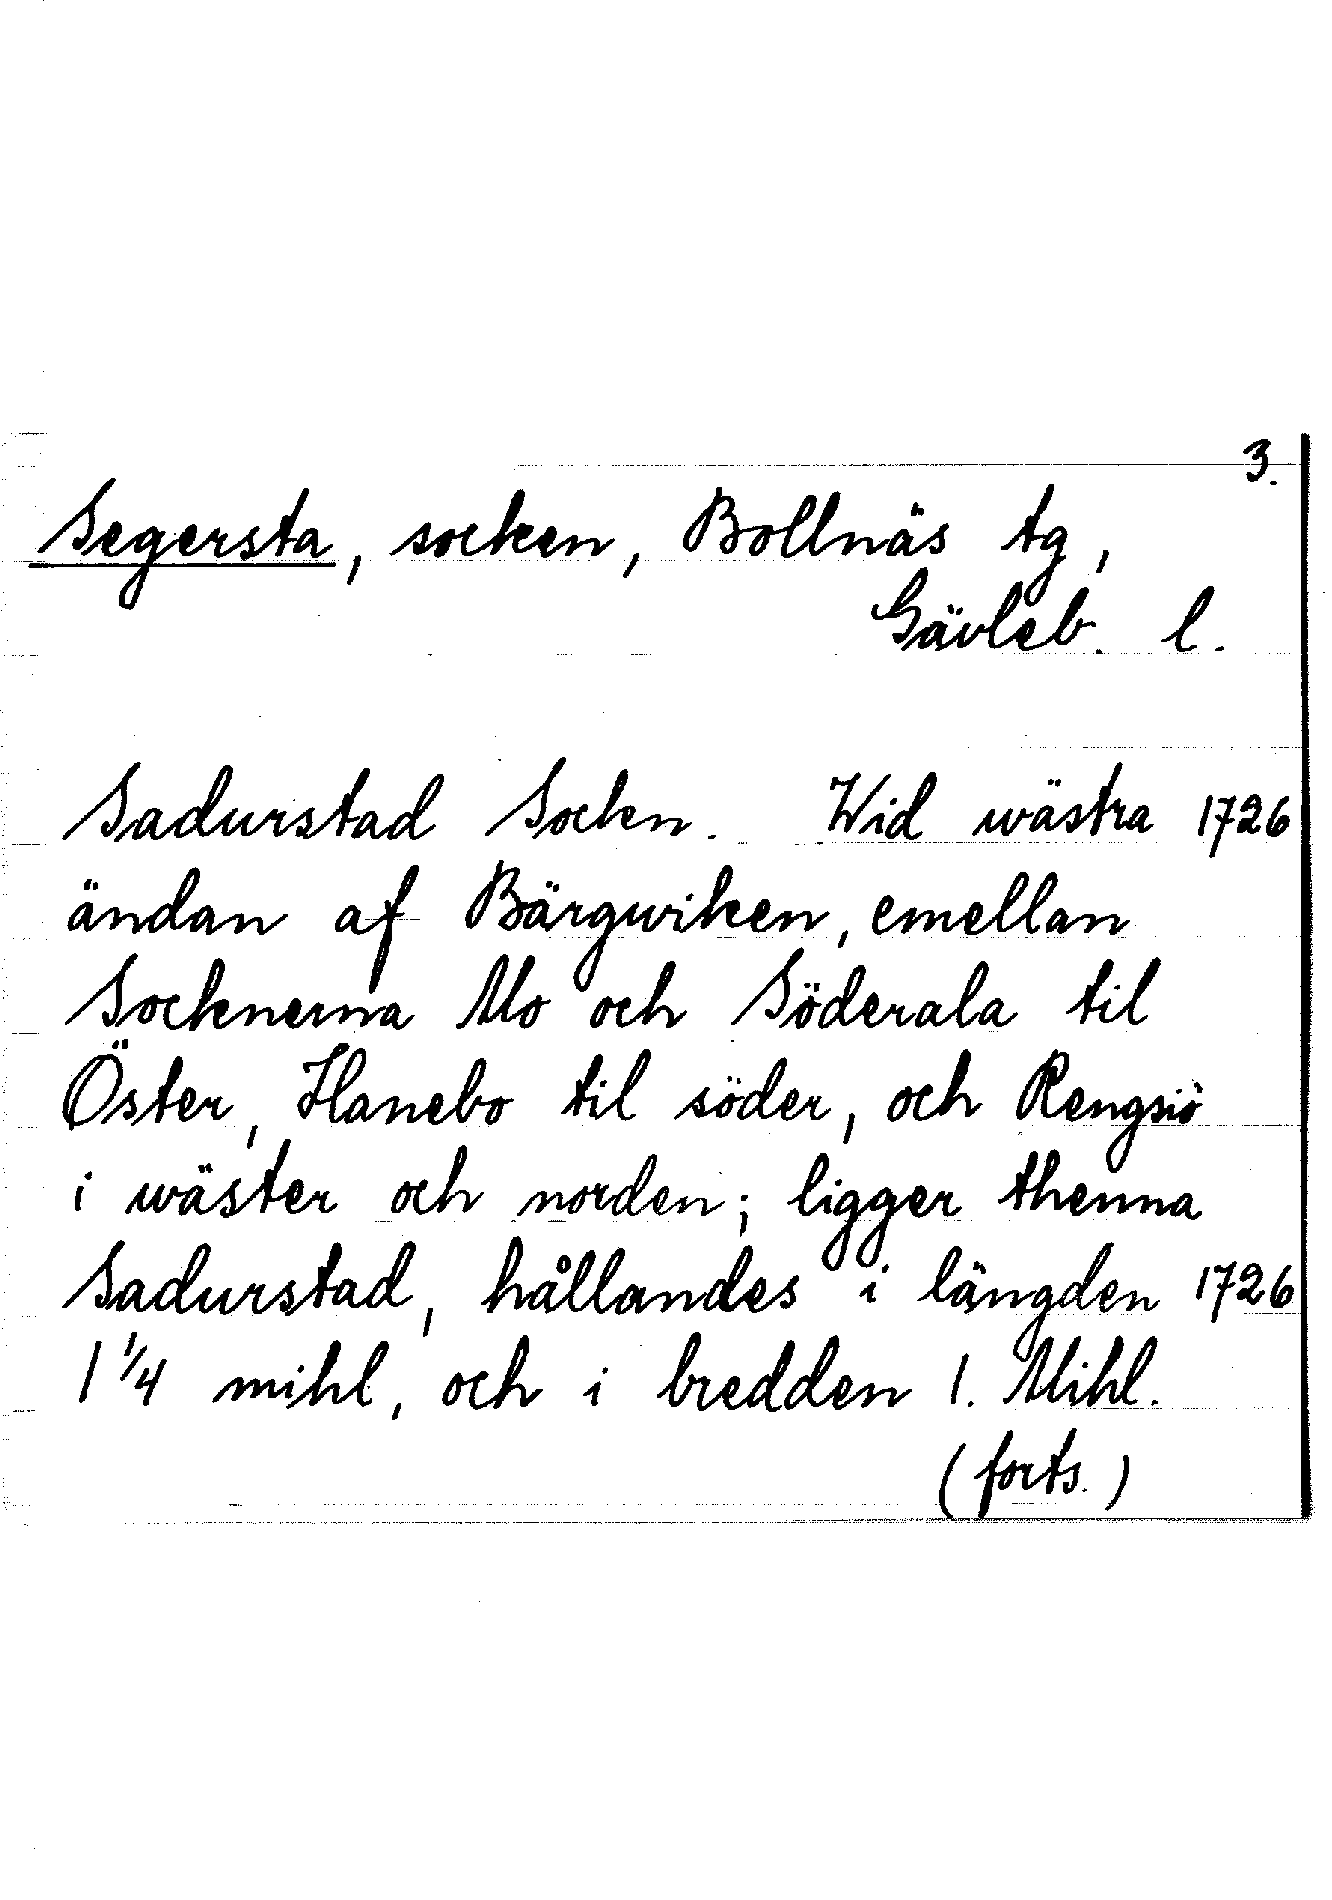 3.
Segersta, socken, Bollnäs tg,
Gävleb. l.
Sadurstad Socken. Wid wästra 1726
ändan af Bärgwiken, emellan
Socknerna Mo och Söderala til
Öster, Hanebo til söder, och Rengsiö
i wäster och norden; ligger thenna
Sadurstad, hållandes i längden 1726
1 1/4 mihl, och i bredden 1. Mihl.
(forts.)